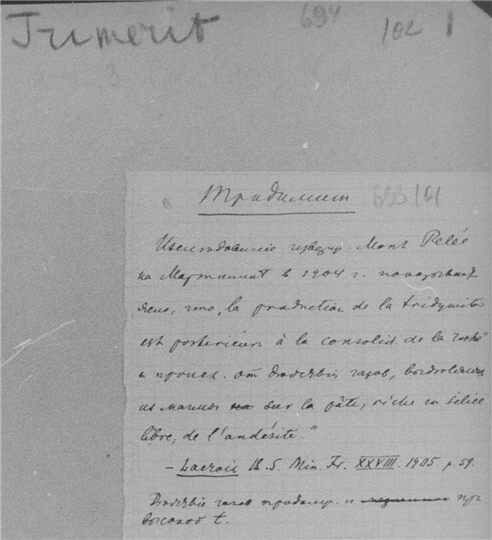 Trimerit 694 102 1
Тридимит 693/01
Изслѣдованіе изверж. Mont Pelée
на Мартиникѣ в 1904 г.
что „la production de la tridymite
est postérieur à la consolid. de la roche"
и произ. от дѣйствія газов,
из магмы sur la pâte, riche en silice
libre, de l'andésite."
– Lacroix B. S. Min. Fr. XXVIII. 1905 p. 59.
Дѣйствіе газов и при
высокой t.